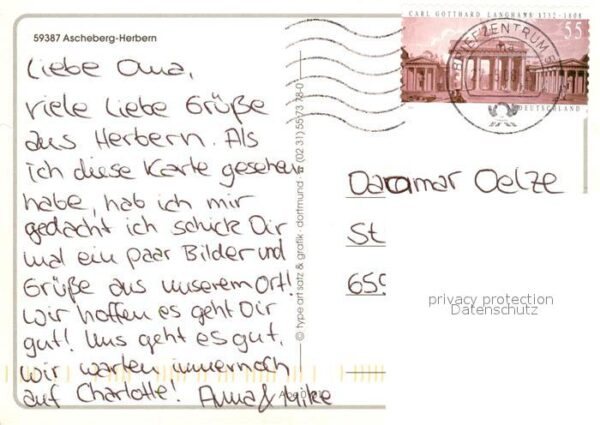 59387 Ascheberg-Herbern
Liebe Oma,
viele liebe Grüße
aus Herbern. Als
ich diese Karte gesehen
habe, hab ich mir
gedacht ich schick Dir
mal ein paar Bilder und
Grüße aus unserem Ort!
Wir hoffen es geht Dir
gut! Uns geht es gut,
wir warten immernoch
auf Charlotte! Anna & Mike
© type art satz & grafik · dortmund ☎ (02 31) 55 73 78-0
CARL GOTTHARD LANGHANS 1732–1808
55
DEUTSCHLAND
BRIEFZENTRUM
Dagmar Oelze
St
659
privacy protection
Datenschutz